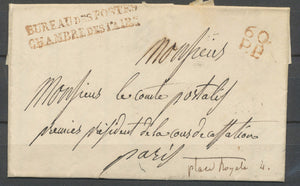 BUREAU DES POSTES
CHAMBRE DES PAIRS
60.
P.P.
Monsieur
Monsieur le Comte portalis
premier président de la Cour de Cassation
paris
place Royale 4.